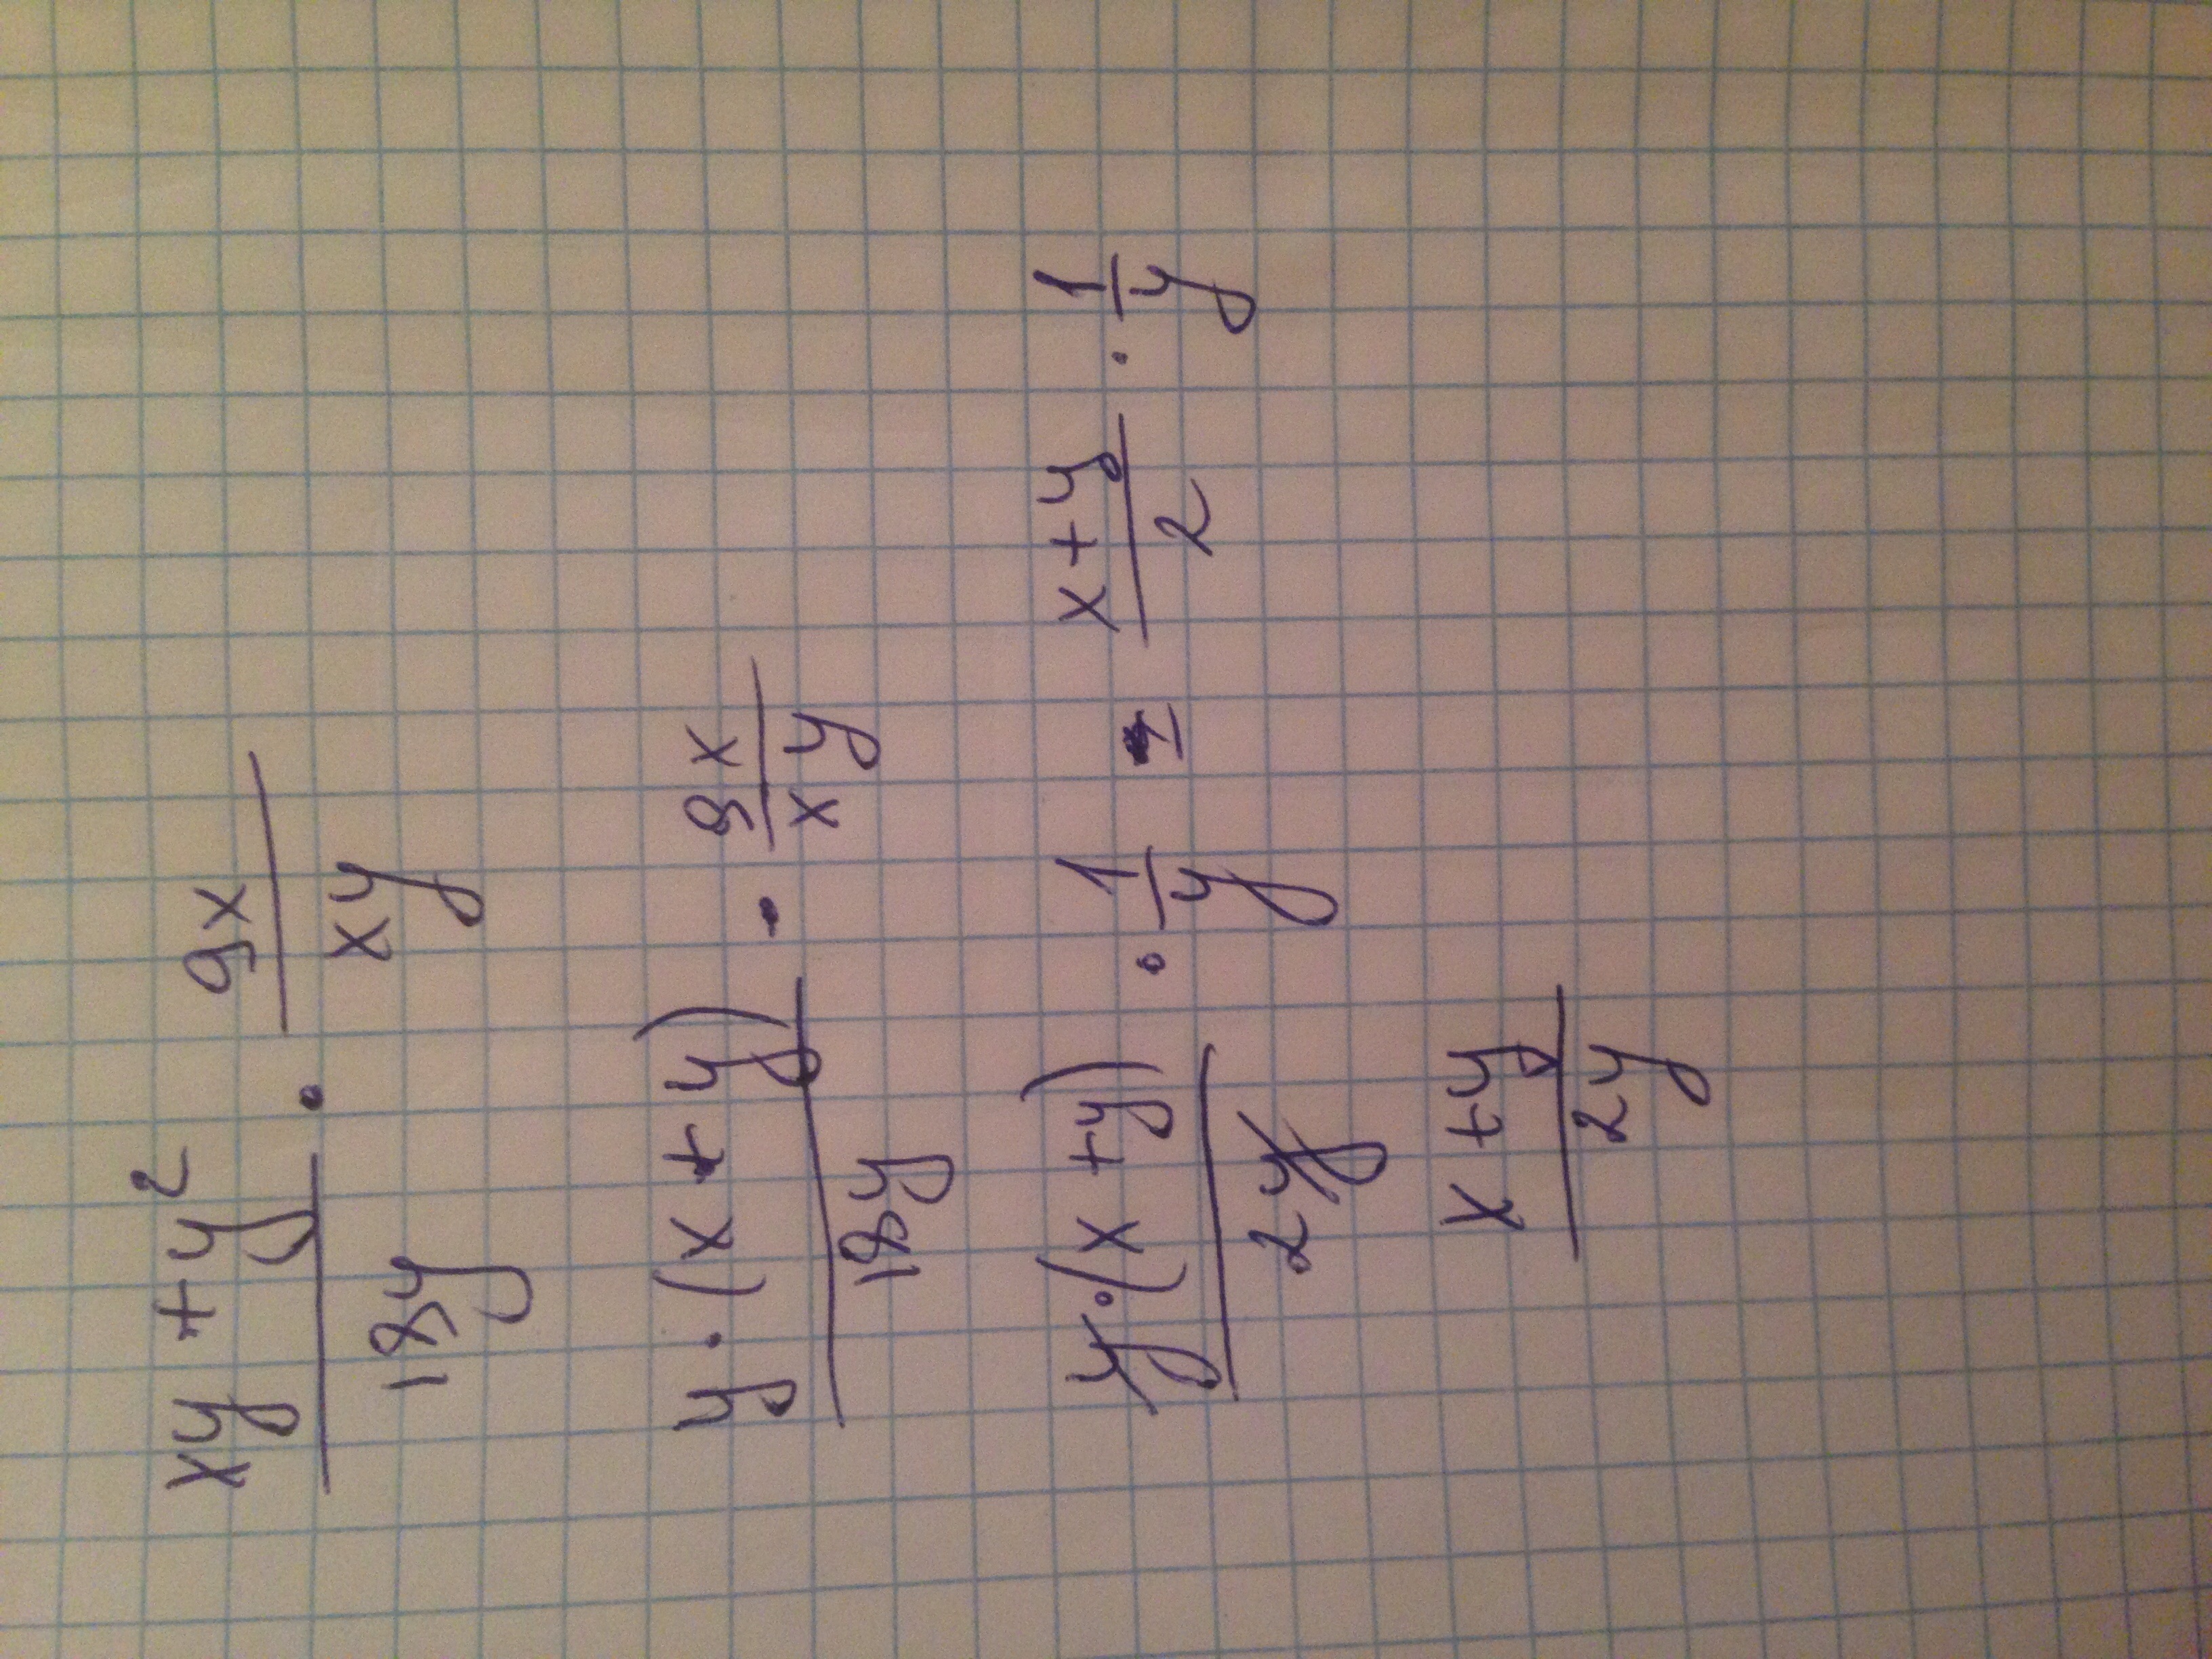 (xy + y²)/(18y) · (9x)/(xy)
(y · (x + y))/(18y) · (9x)/(xy)
(y · (x + y))/(2y) · 1/y = (x + y)/2 · 1/y
(x + y)/(2y)